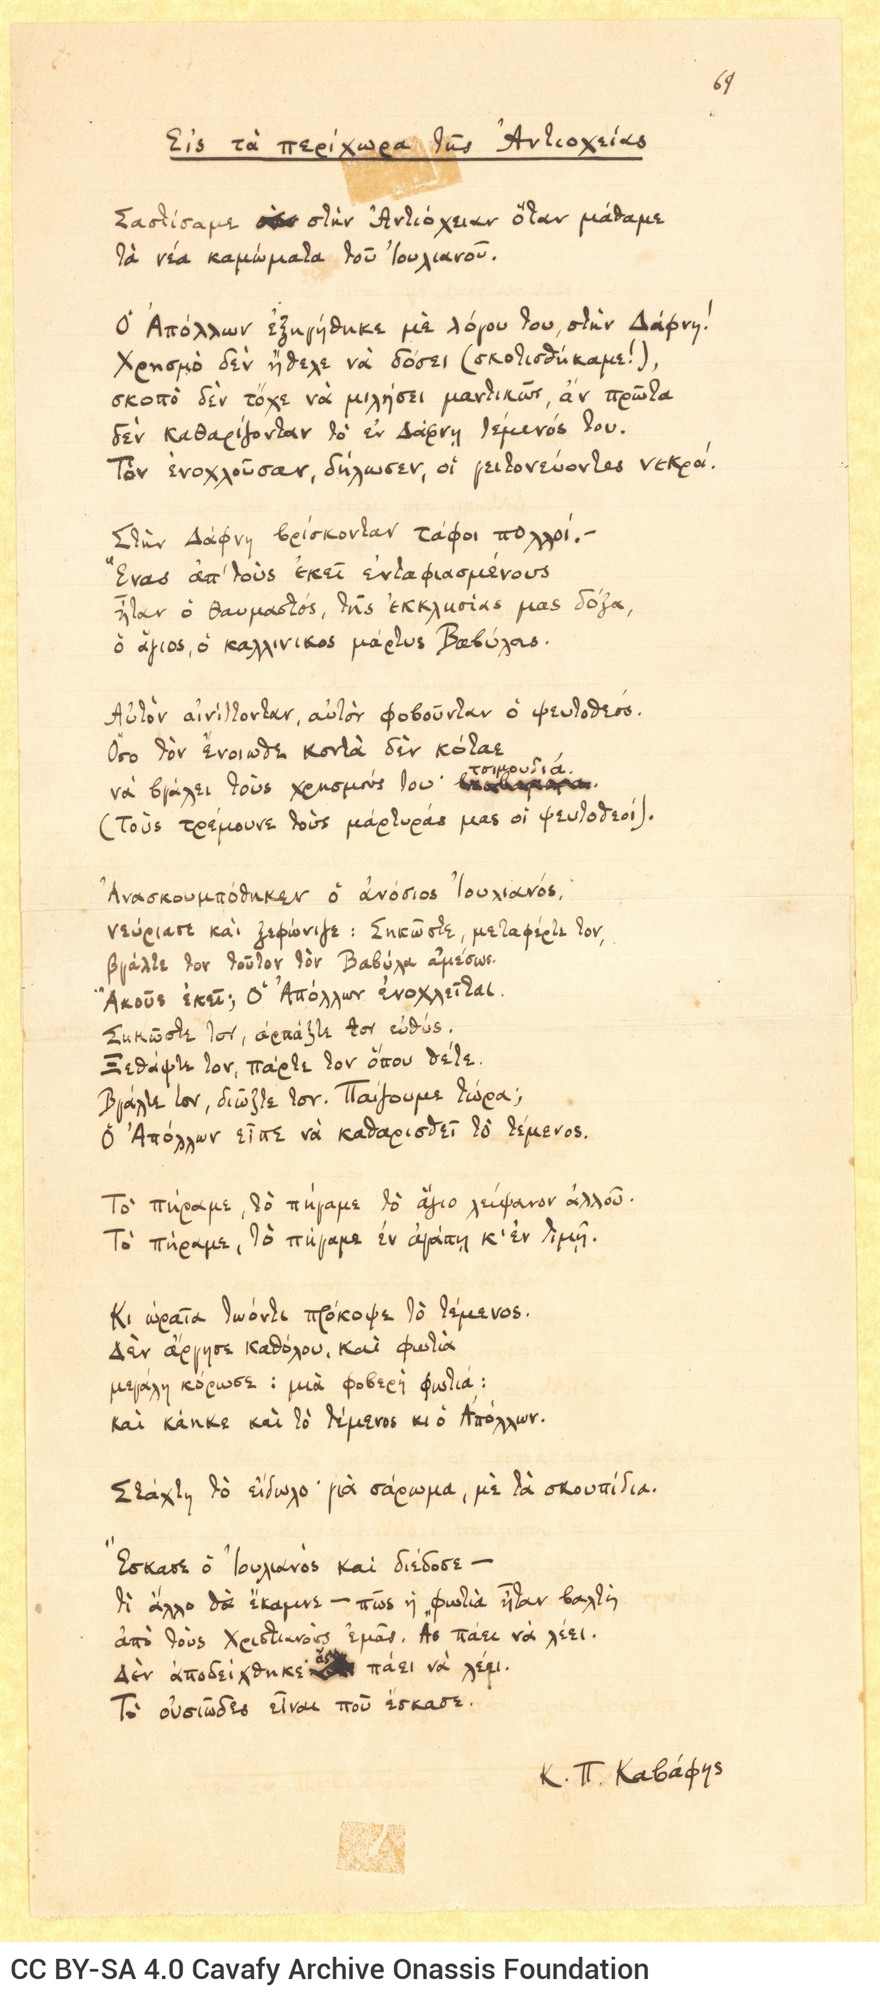 69
Εἰς τὰ περίχωρα τῆς Ἀντιοχείας
Σαστίσαμε στὴν Ἀντιόχειαν ὅταν μάθαμε
τὰ νέα καμώματα τοῦ Ἰουλιανοῦ.
Ὁ Ἀπόλλων ἐξηγήθηκε μὲ λόγου του, στὴν Δάφνη!
Χρησμὸ δὲν ἤθελε νὰ δόσει (σκοτισθήκαμε!),
σκοπὸ δὲν τόχε νὰ μιλήσει μαντικῶς, ἂν πρῶτα
δὲν καθαρίζονταν τὸ ἐν Δάφνῃ τέμενός του.
Τὸν ἐνοχλοῦσαν, δήλωσεν, οἱ γειτονεύοντες νεκροί.
Στὴν Δάφνη βρίσκονταν τάφοι πολλοί.—
Ἕνας ἀπ' τοὺς ἐκεῖ ἐνταφιασμένους
ἦταν ὁ θαυμαστός, τῆς ἐκκλησίας μας δόξα,
ὁ ἅγιος, ὁ καλλίνικος μάρτυς Βαβύλας.
Αὐτὸν αἰνίττονταν, αὐτὸν φοβοῦνταν ὁ ψευτοθεός.
Ὅσο τὸν ἔνοιωθε κοντὰ δὲν κόταε
νὰ βγάλει τοὺς χρησμούς του· τσιμουδιά.
(Τοὺς τρέμουνε τοὺς μάρτυράς μας οἱ ψευτοθεοί).
Ἀνασκουμπόθηκεν ὁ ἀνόσιος Ἰουλιανός,
νεύριασε καὶ ξεφώνιζε: Σηκῶστε, μεταφέρτε τον,
βγάλτε τον τοῦτον τὸν Βαβύλα ἀμέσως.
Ἀκοῦς ἐκεῖ; Ὁ Ἀπόλλων ἐνοχλεῖται.
Σηκῶστε τον, ἁρπάξτε τον εὐθύς.
Ξεθάψτε τον, πάρτε τον ὅπου θέτε.
Βγάλτε τον, διῶξτε τον. Παίζουμε τώρα;
Ὁ Ἀπόλλων εἶπε νὰ καθαρισθεῖ τὸ τέμενος.
Τὸ πήραμε, τὸ πήγαμε τὸ ἅγιο λείψανον ἀλλοῦ.
Τὸ πήραμε, τὸ πήγαμε ἐν ἀγάπῃ κ' ἐν τιμῇ.
Κι ὡραῖα τωόντι πρόκοψε τὸ τέμενος.
Δὲν ἄργησε καθόλου, καὶ φωτιὰ
μεγάλη κόρωσε: μιὰ φοβερὴ φωτιά:
καὶ κάηκε καὶ τὸ τέμενος κι ὁ Ἀπόλλων.
Στάχτη τὸ εἴδωλο· γιὰ σάρωμα, μὲ τὰ σκουπίδια.
Ἔσκασε ὁ Ἰουλιανὸς καὶ διέδοσε—
τί ἄλλο θὰ ἔκαμνε—πῶς ἡ φωτιὰ ἦταν βαλτὴ
ἀπὸ τοὺς Χριστιανοὺς ἐμᾶς. Ἂς πάει νὰ λέει.
Δὲν ἀποδείχθηκε· ἂς πάει νὰ λέει.
Τὸ οὐσιῶδες εἶναι ποῦ ἔσκασε.
Κ. Π. Καβάφης
CC BY-SA 4.0 Cavafy Archive Onassis Foundation